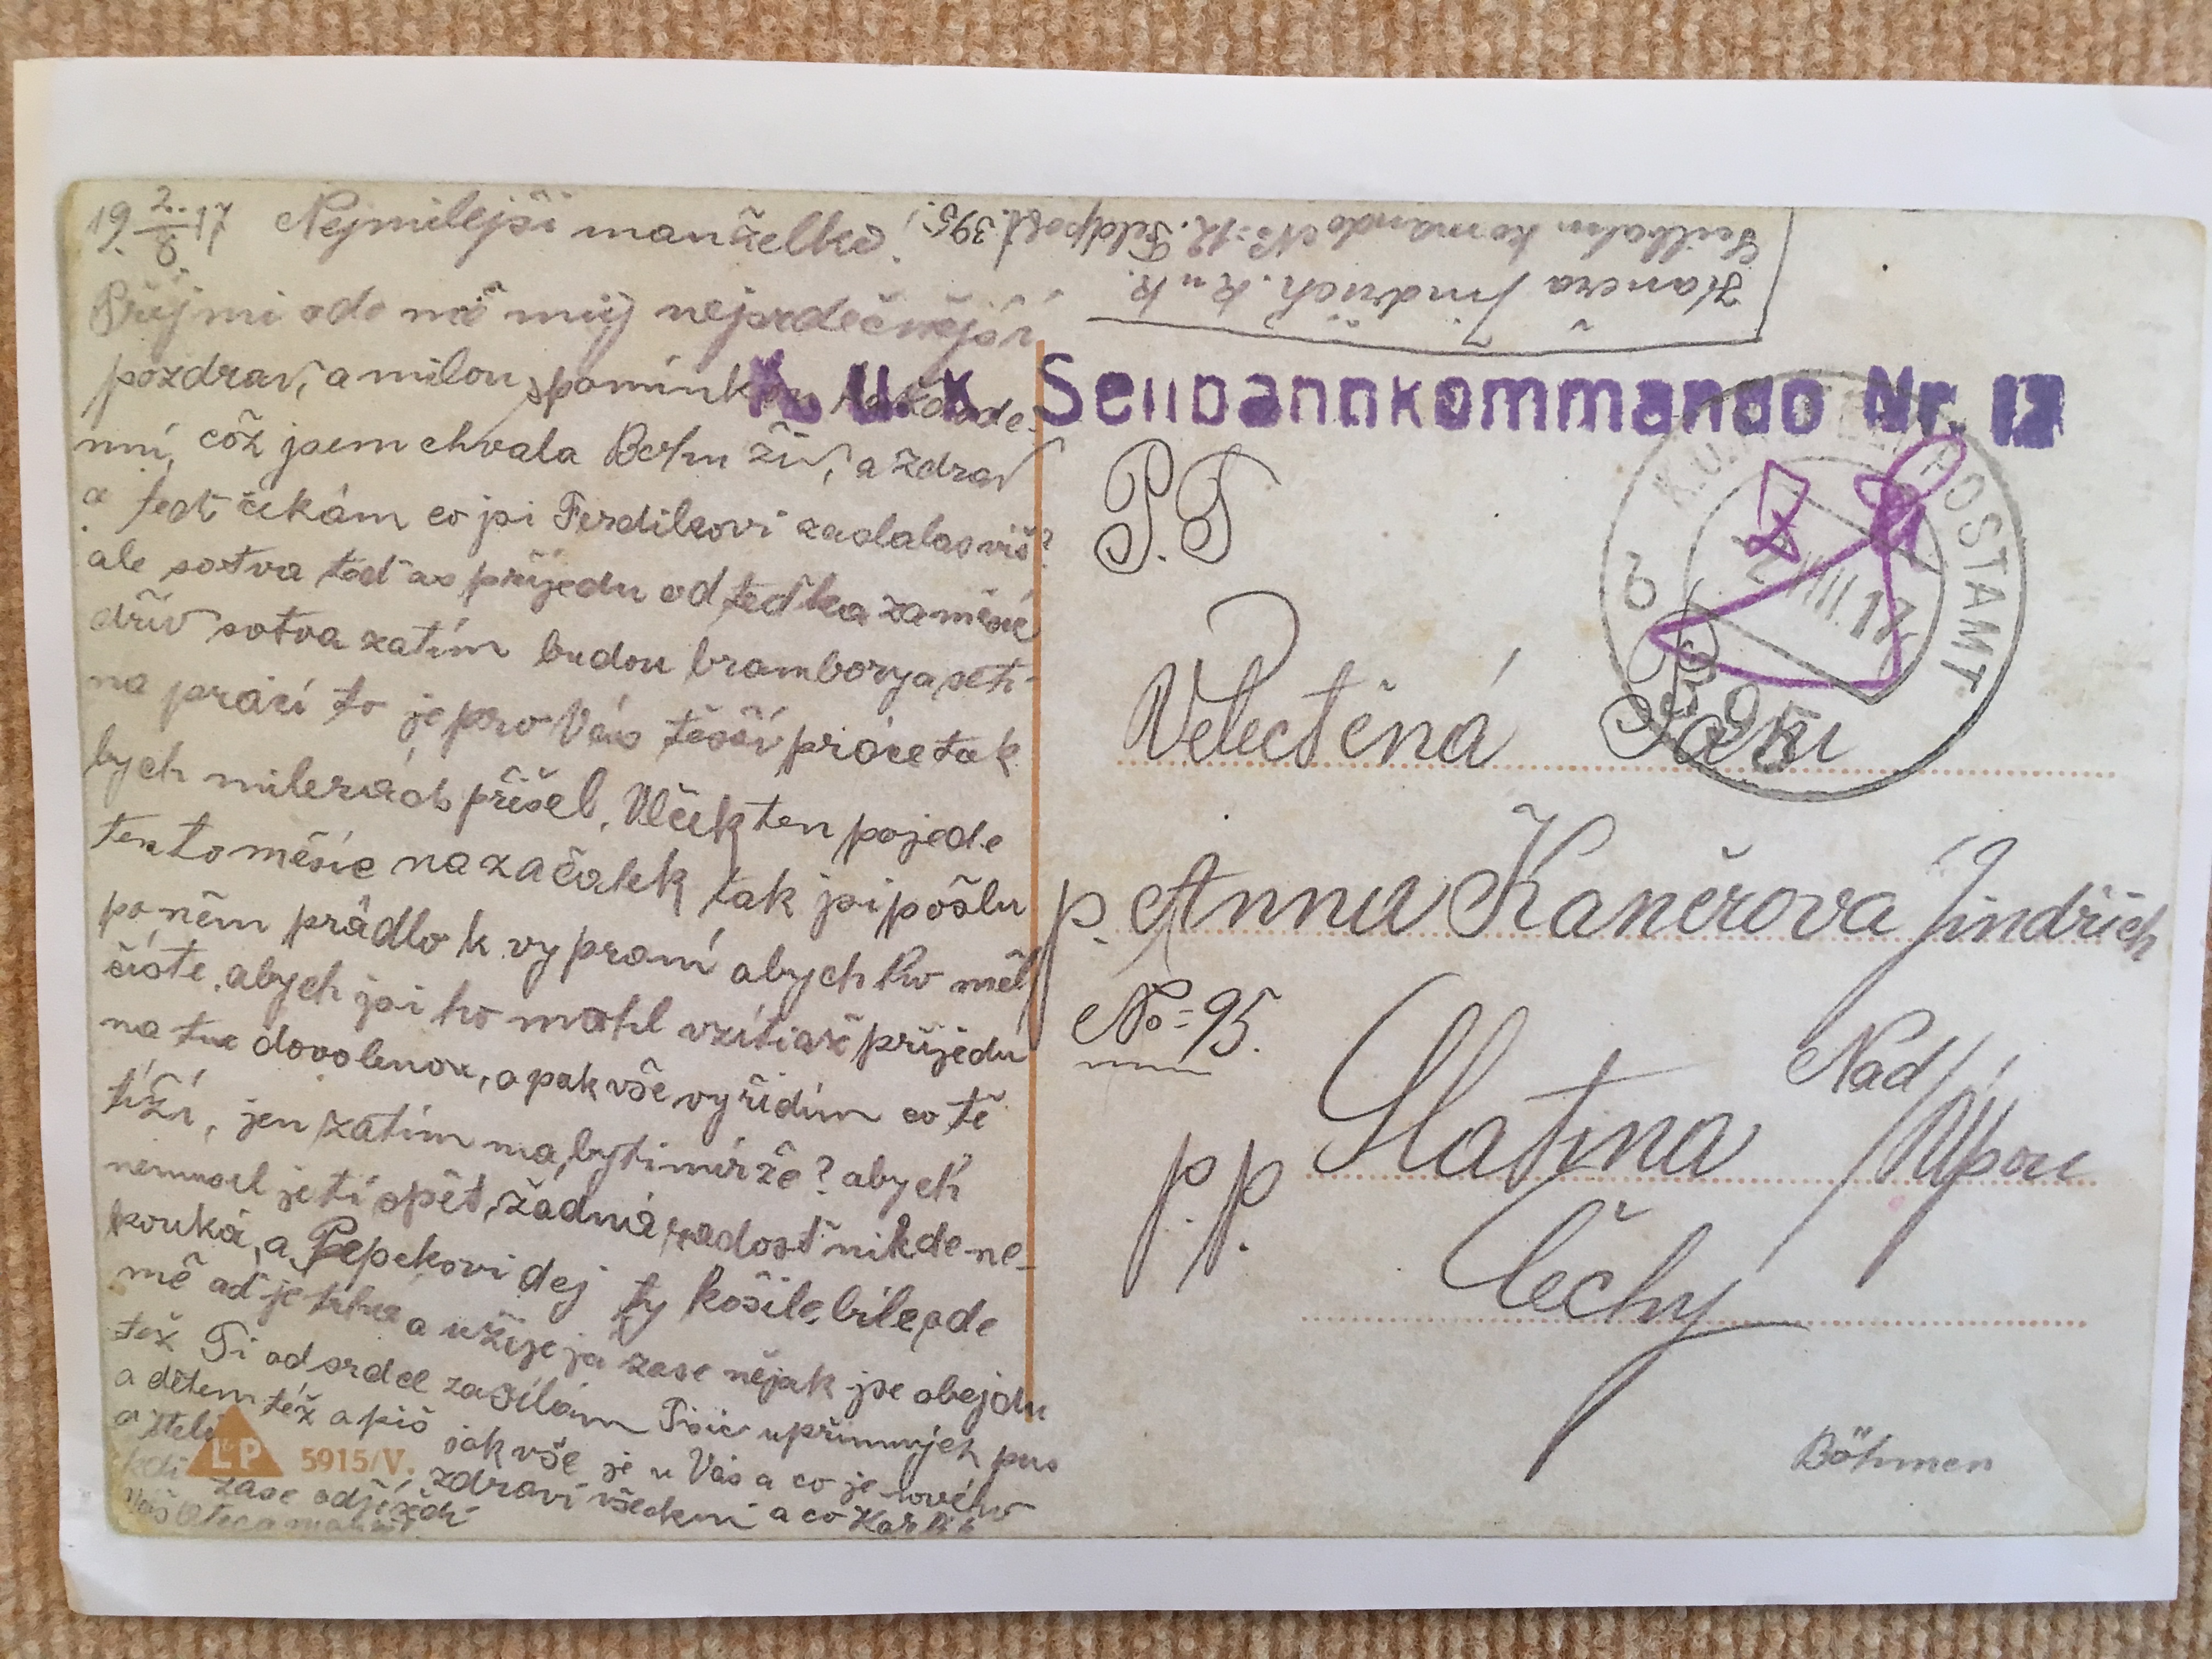 19 2./8. 17 Nejmilejší manželko!
Přijmi ode mě můj nejsrdečnější
pozdrav, a milou spomínku každode-
nní, což jsem chvala Bohu živ, a zdrav
a teď čekám co jsi Ferdikovi zadala
ale sotva teď as přijedu od teďka za měsíc
dřív sotva zatím budou brambory a seti
na práci to je pro Vás těšší práce tak
bych milerád přišel. Vlček ten pojede
tento měsíc na začátek tak jsi pošlu
po něm prádlo k vypraní abych ho měl
čisté. abych jsi ho mohl vzíti až přijedu
na tu dovolenou, a pak vše vyřídím co tě
tíží, jen zatím má býti mír že? abych
nemusel jeti opět, žádná radost nikde ne-
kouká, a Pepekovi dej ty košile bílé ode
mě ať je a užije já zase nějak jse obejdu
též Ti od srdce zasílám Tisíc upřímných pus
a dětem též a piš jak vše je u Vás a co je nového
zdraví všeckni a co Karlík
kdi zase odjíždí
Váš Otec a
Kaněra Jindřich. K u k.
Seilbahn komando No=12. Feldpost. 395.
K. u. K Seilbahnkommando Nr. 12
K.u.K. FELDPOSTAMT
2 VIII 17
b
395
P.T
Velectěná Paní
p. Anna Kaněrova Jindřich
No=95.
Slatina Nad/Úpou
p.p.
Čechy
Böhmen
L&P 5915/V.